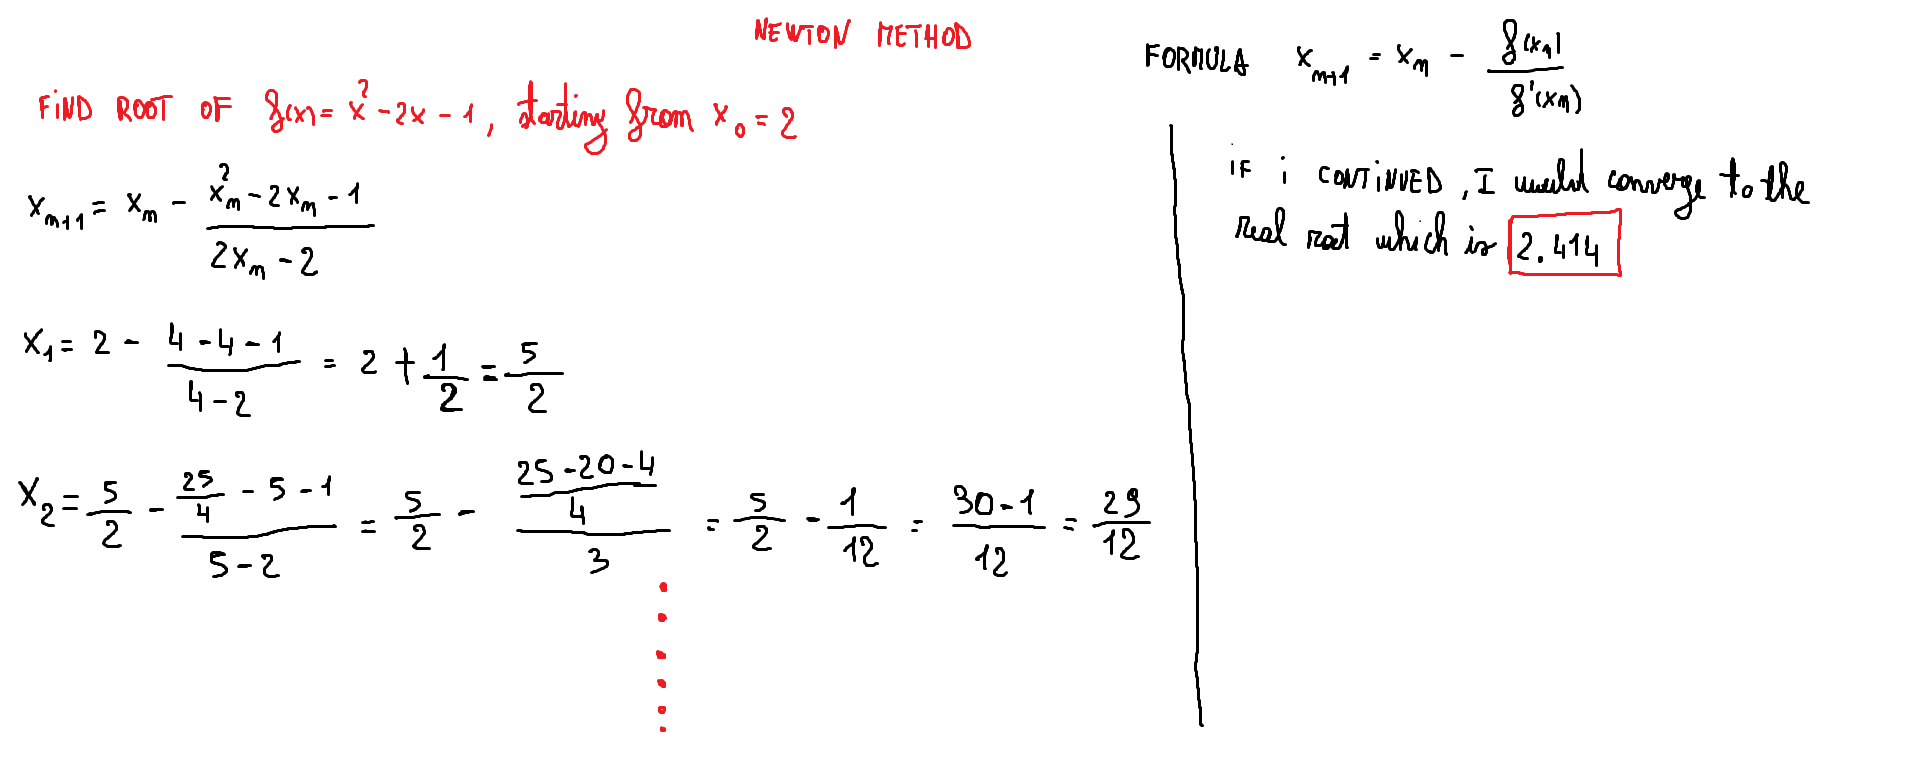 NEWTON METHOD
FIND ROOT OF f(x) = x² - 2x - 1, starting from x₀ = 2
xₙ₊₁ = xₙ - (xₙ² - 2xₙ - 1)/(2xₙ - 2)
x₁ = 2 - (4 - 4 - 1)/(4 - 2) = 2 + 1/2 = 5/2
x₂ = 5/2 - (25/4 - 5 - 1)/(5 - 2) = 5/2 - ((25 - 20 - 4)/4)/3 = 5/2 - 1/12 = (30 - 1)/12 = 29/12
FORMULA xₙ₊₁ = xₙ - f(xₙ)/f'(xₙ)
IF i CONTINUED, I would converge to the
real root which is 2.414